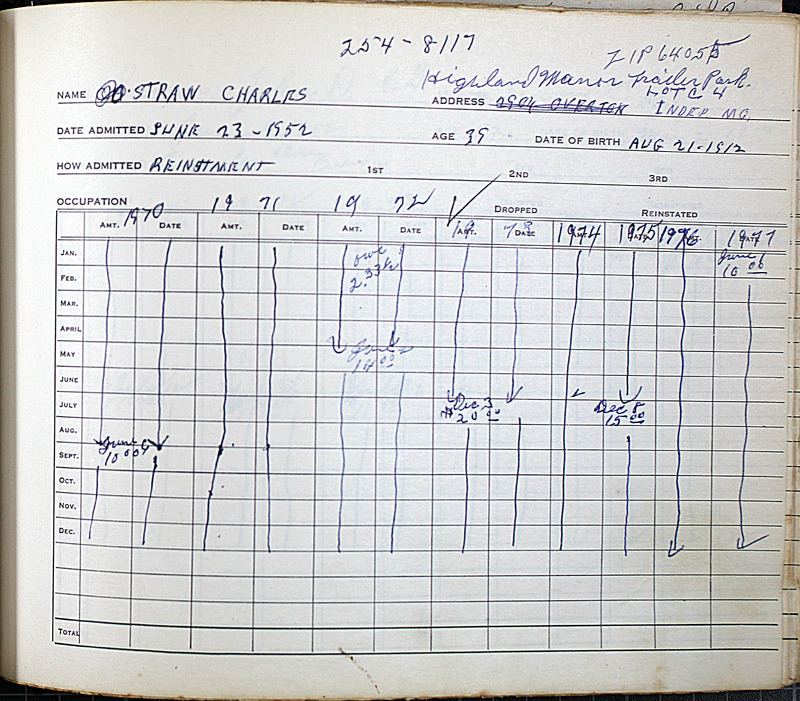 254-8117
ZIP 64055
Highland Manor Trailer Park.
LOT C 4
NAME STRAW CHARLES ADDRESS 2904 OVERTON INDEP MO.
DATE ADMITTED JUNE 23-1952 AGE 39 DATE OF BIRTH AUG 21-1912
HOW ADMITTED REINSTMENT 1ST 2ND 3RD
OCCUPATION DROPPED REINSTATED
1970 19 71 19 72 19 73 1974 1975 1976 1977
AMT. DATE AMT. DATE AMT. DATE AMT. DATE
JAN. owe June 1
FEB. 2.33 10 00
MAR.
APRIL
MAY 14 00
JUNE
JULY Dec 3 Dec 8
AUG. 20 00 15 00
SEPT. June 10 00
OCT.
NOV.
DEC.
TOTAL